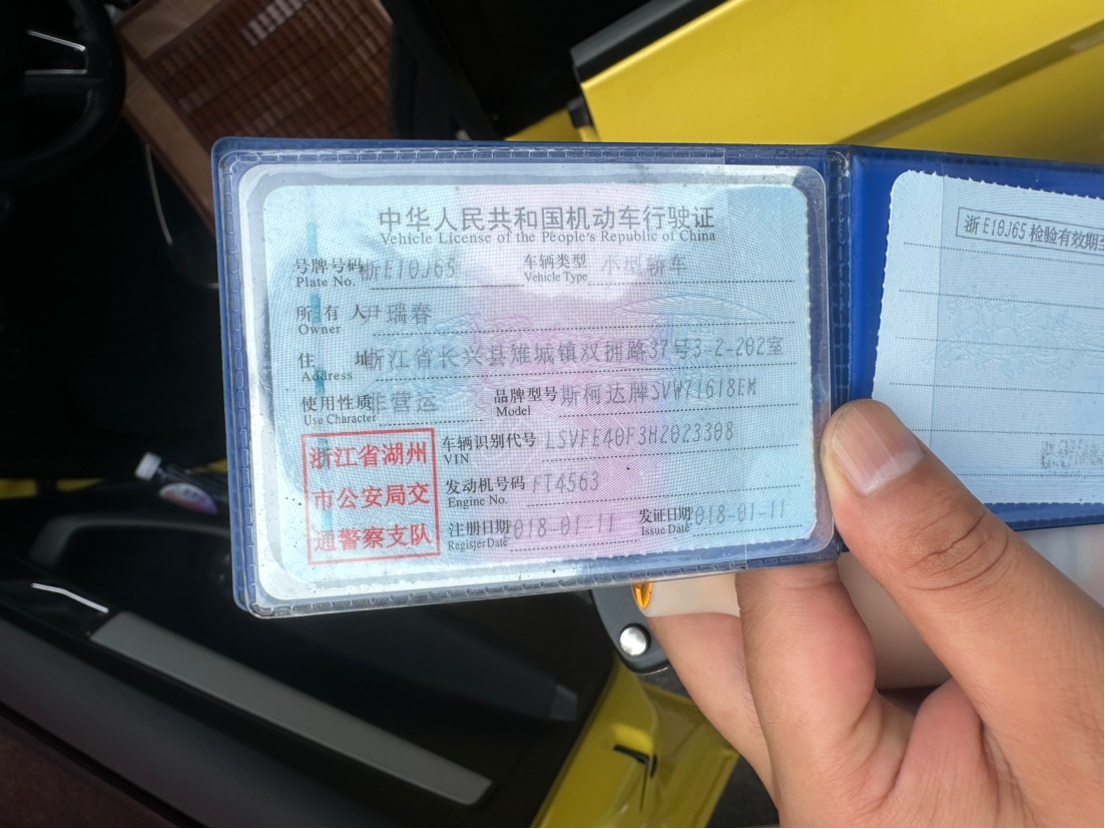 中华人民共和国机动车行驶证
Vehicle License of the People's Republic of China
号牌号码 浙E10J65 车辆类型 小型轿车
Plate No. Vehicle Type
所有人 尹瑞春
Owner
住址 浙江省长兴县雉城镇双拥路37号3-2-202室
Address
使用性质 非营运 品牌型号 斯柯达牌SVW71618EM
Use Character Model
浙江省湖州
市公安局交
通警察支队
车辆识别代号 LSVFE40F3H2023308
VIN
发动机号码 FT4563
Engine No.
注册日期 2018-01-11 发证日期 2018-01-11
Register Date Issue Date
浙E10J65 检验有效期至